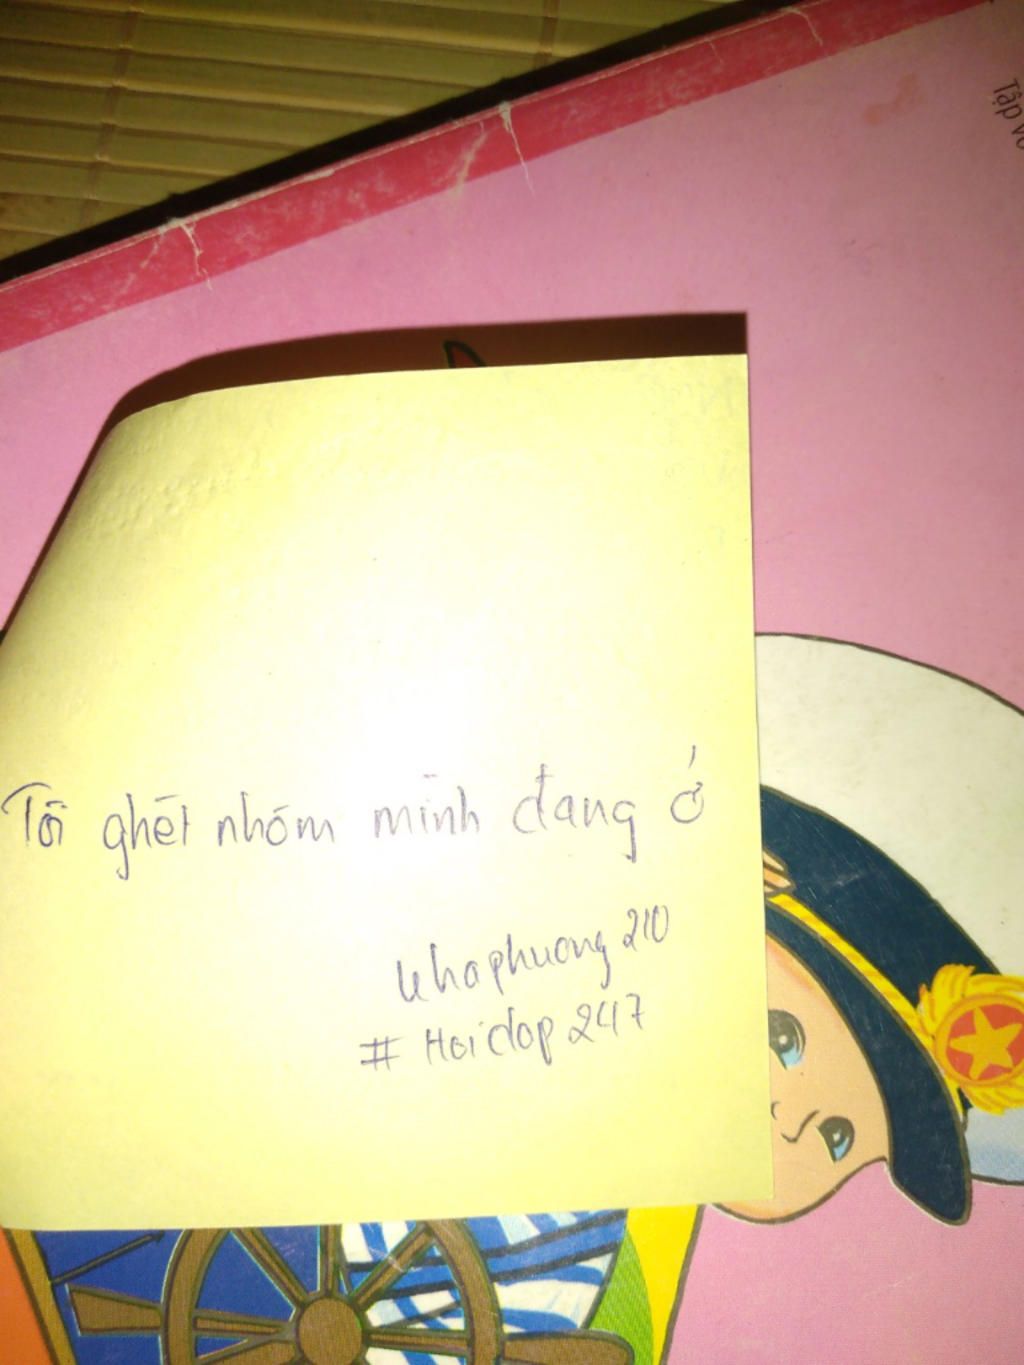 Tập vở
Tôi ghét nhóm mình đang ở
khaphuong210
# Hoidap247